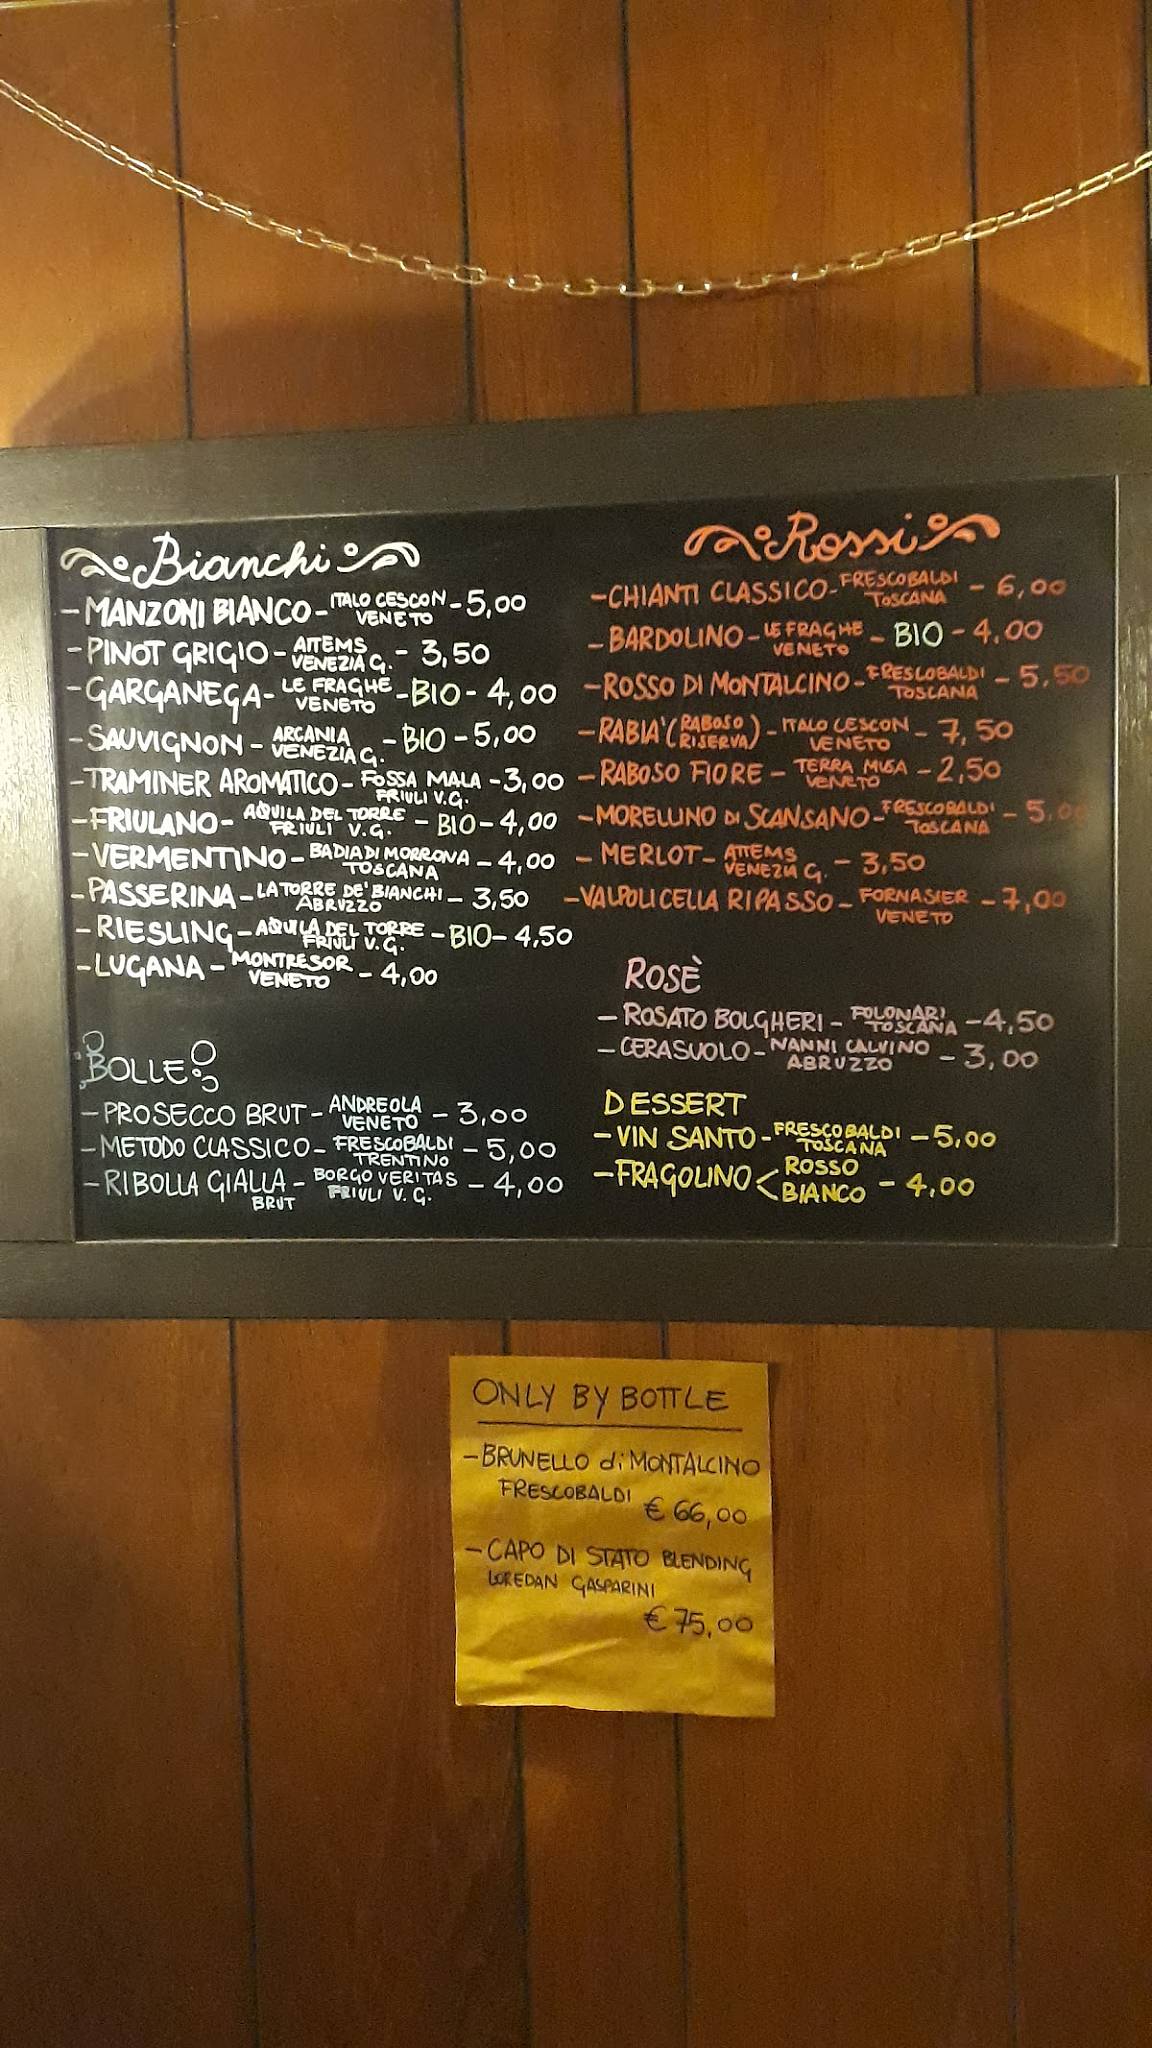 Bianchi
- MANZONI BIANCO - ITALO CESCON VENETO - 5,00
- PINOT GRIGIO - ATTEMS VENEZIA G. - 3,50
- GARGANEGA - LE FRAGHE VENETO - BIO - 4,00
- SAUVIGNON - ARCANIA VENEZIA G. - BIO - 5,00
- TRAMINER AROMATICO - FOSSA MALA FRIULI V.G. - 3,00
- FRIULANO - AQUILA DEL TORRE FRIULI V.G. - BIO - 4,00
- VERMENTINO - BADIA DI MORRONA TOSCANA - 4,00
- PASSERINA - LA TORRE DE' BIANCHI ABRUZZO - 3,50
- RIESLING - AQUILA DEL TORRE FRIULI V.G. - BIO - 4,50
- LUGANA - MONTRESOR VENETO - 4,00
BOLLE
- PROSECCO BRUT - ANDREOLA VENETO - 3,00
- METODO CLASSICO - FRESCOBALDI TRENTINO - 5,00
- RIBOLLA GIALLA BRUT - BORGO VERITAS FRIULI V.G. - 4,00
Rossi
- CHIANTI CLASSICO - FRESCOBALDI TOSCANA - 6,00
- BARDOLINO - LE FRAGHE VENETO - BIO - 4,00
- ROSSO DI MONTALCINO - FRESCOBALDI TOSCANA - 5,50
- RABIA' (RABOSO RISERVA) - ITALO CESCON VENETO - 7,50
- RABOSO FIORE - TERRA MUSA VENETO - 2,50
- MORELLINO DI SCANSANO - FRESCOBALDI TOSCANA - 5,00
- MERLOT - ATTEMS VENEZIA G. - 3,50
- VALPOLICELLA RIPASSO - FORNASIER VENETO - 7,00
ROSÈ
- ROSATO BOLGHERI - FOLONARI TOSCANA - 4,50
- CERASUOLO - NANNI CALVINO ABRUZZO - 3,00
DESSERT
- VIN SANTO - FRESCOBALDI TOSCANA - 5,00
- FRAGOLINO < ROSSO BIANCO - 4,00
ONLY BY BOTTLE
- BRUNELLO di MONTALCINO
FRESCOBALDI
€ 66,00
- CAPO DI STATO BLENDING
LOREDAN GASPARINI
€ 75,00